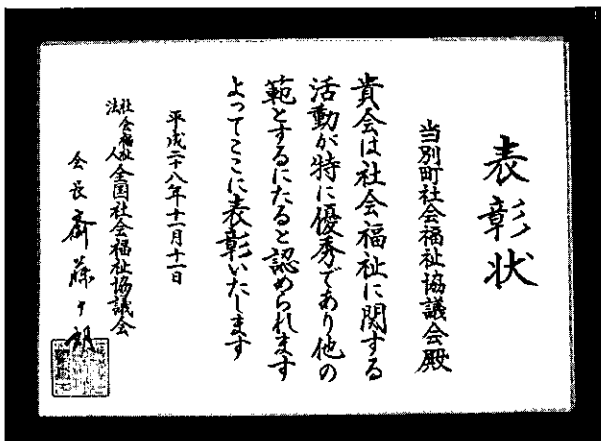 表彰状
当別町社会福祉協議会殿
貴会は社会福祉に関する
活動が特に優秀であり他の
範とするにたると認められます
よってここに表彰いたします
平成二十八年十一月十一日
社会福祉法人全国社会福祉協議会
会長斎藤十朗